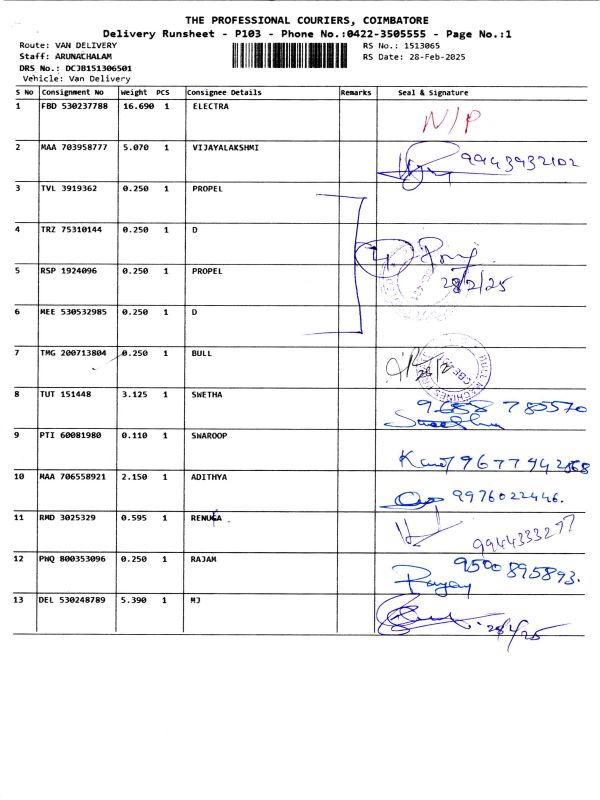 THE PROFESSIONAL COURIERS, COIMBATORE
Delivery Runsheet - P103 - Phone No.:0422-3505555 - Page No.:1
Route: VAN DELIVERY RS No.: 1513065
Staff: ARUNACHALAM RS Date: 28-Feb-2025
DRS No.: DCJB151306501
Vehicle: Van Delivery
S No Consignment No Weight PCS Consignee Details Remarks Seal & Signature
1 FBD 530237788 16.690 1 ELECTRA N/P
2 MAA 703958777 5.070 1 VIJAYALAKSHMI 9943932102
3 TVL 3919362 0.250 1 PROPEL
4 TRZ 75310144 0.250 1 D 4
5 RSP 1924096 0.250 1 PROPEL 28/2/25
6 MEE 530532985 0.250 1 D
7 TMG 200713804 0.250 1 BULL
8 TUT 151448 3.125 1 SWETHA 9688 780570
9 PTI 60081980 0.110 1 SWAROOP
10 MAA 706558921 2.150 1 ADITHYA 9976022446.
11 RMD 3025329 0.595 1 RENUGA 9944333297
12 PNQ 800353096 0.250 1 RAJAM 9500895893.
13 DEL 530248789 5.390 1 MJ